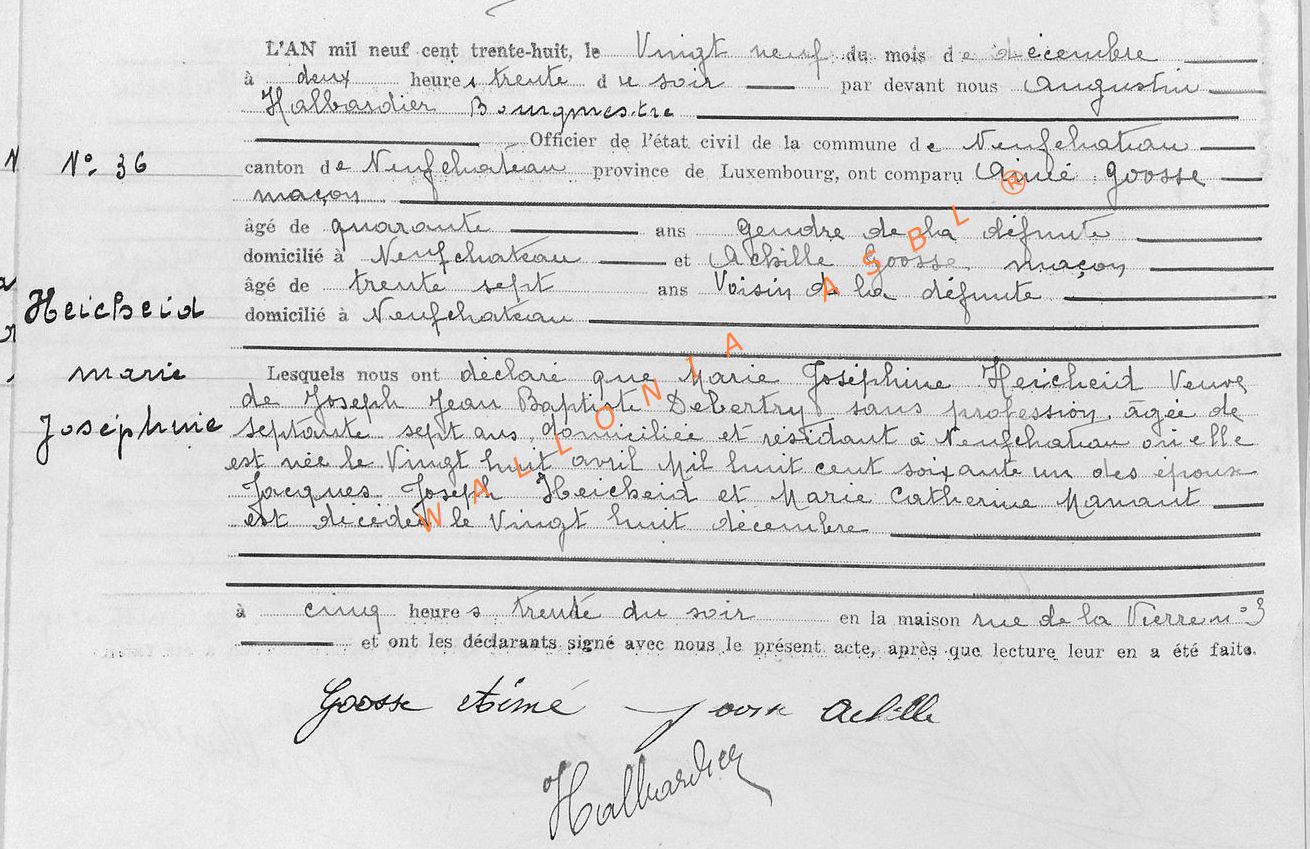 L'AN mil neuf cent trente-huit, le Vingt neuf du mois de décembre
à deux heures trente du soir par devant nous Augustin
Halbardier Bourgmestre
Officier de l'état civil de la commune de Neufchateau
N° 36
canton de Neufchateau province de Luxembourg, ont comparu Aimé Goosse
maçon
âgé de quarante ans gendre de la défunte
domicilié à Neufchateau et Achille Goosse, maçon
âgé de trente sept ans Voisin de la défunte
domicilié à Neufchateau
Heicheid
marie
Joséphine
Lesquels nous ont déclaré que Marie Joséphine Heicheid Veuve
de Joseph Jean Baptiste Debertry sans profession, âgée de
septante sept ans, domiciliée et résidant à Neufchateau où elle
est née le Vingt huit avril Mil huit cent soixante un des époux
Jacques Joseph Heicheid et Marie Catherine Manaut
est décédée le Vingt huit décembre
à cinq heures trente du soir en la maison rue de la Vierre n° 3
et ont les déclarants signé avec nous le présent acte, après que lecture leur en a été faite.
Goosse Aimé Goosse Achille
Halbardier
WALLONIA ASBL ®